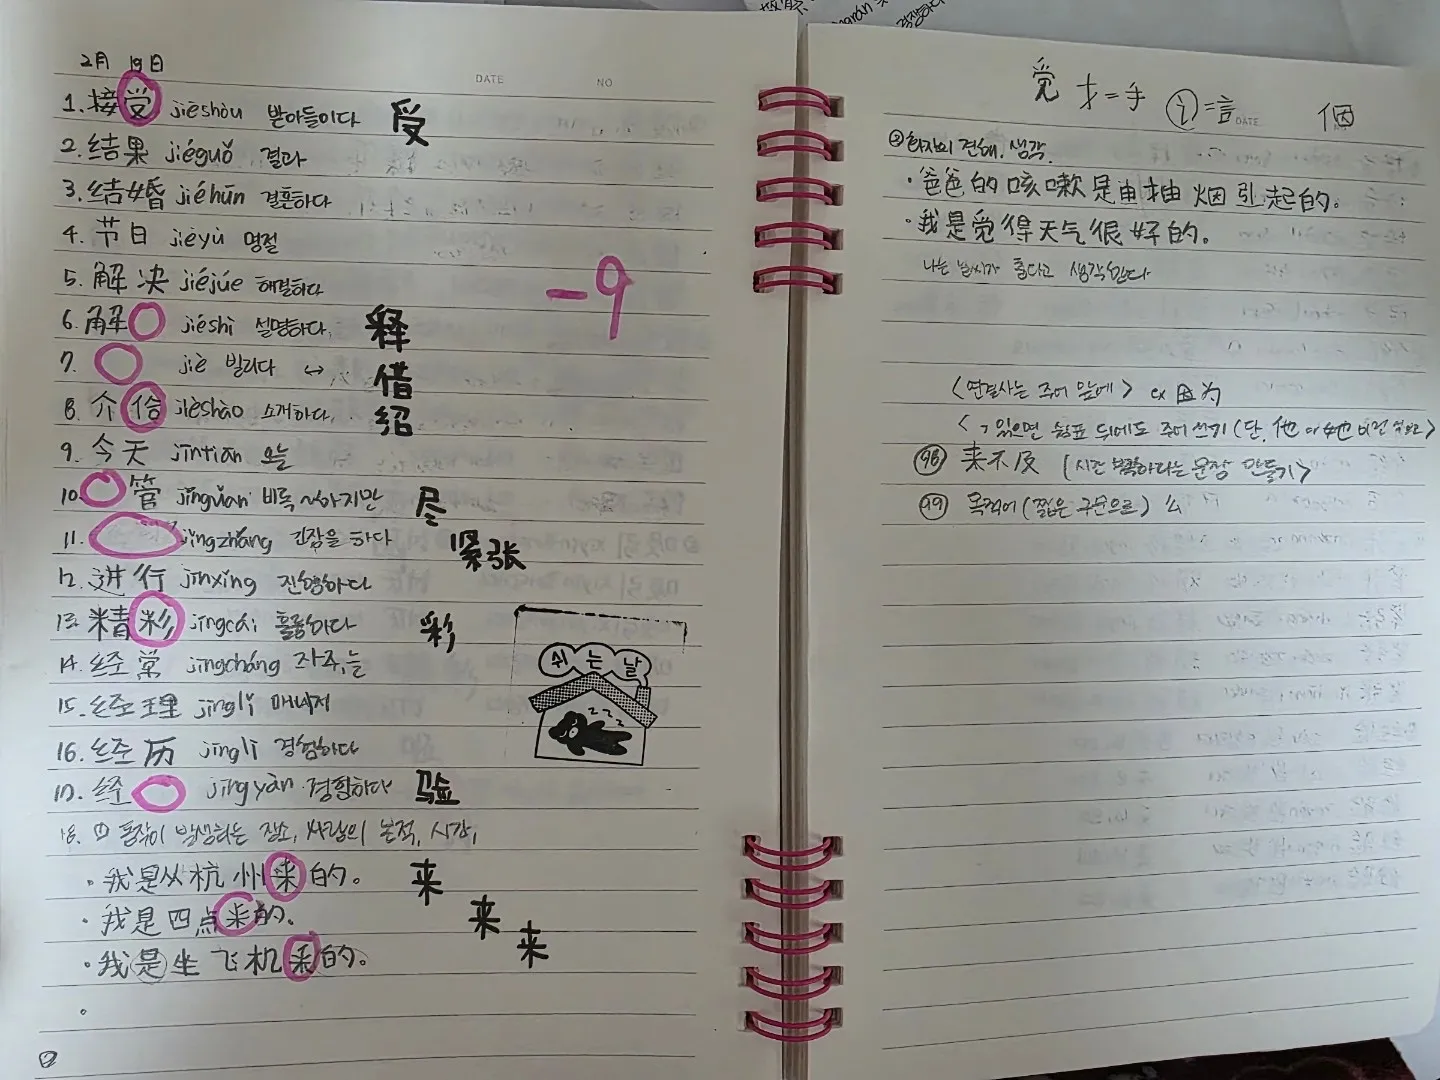 2月 19日
DATE NO
1. 接受 jiēshòu 받아들이다 受
2. 结果 jiéguǒ 결과
3. 结婚 jiéhūn 결혼하다
4. 节日 jiéyù 명절
5. 解决 jiějúe 해결하다
6. 解 jiěshì 설명하다. 释
7. jiè 빌리다 ↔ 借
8. 介 jièshào 소개하다. 绍
9. 今天 jīntiān 오늘
10. 管 jǐngunǎn 비록 ~하지만 尽
11. jǐngzhāng 긴장을 하다 紧张
12. 进行 jìnxíng 진행하다
13. 精彩 jīngcǎi 훌륭하다 彩
14. 经常 jīngcháng 자주, 늘
15. 经理 jīnglǐ 매니저
16. 经历 jīnglì 경험하다
17. 经 jīngyàn 경험하다 验
18. ① 동작이 발생하는 장소, 사람의 목적, 시간,
· 我是从杭州来的。 来
· 我是四点来的。 来
· 我是坐飞机来的。 来
-9
쉬는날
zzz
②
觉 扌=手 讠=言 個
DATE
② 화자의 견해. 생각.
· 爸爸的咳嗽是由抽烟引起的。
· 我是觉得天气很好的。
나는 날씨가 좋다고 생각한다
<연결사는 주어 앞에> ex 因为
있으면 쉼표 뒤에도 주어 쓰기 (단, 他
98 来不及 (시간 부족하다는 문장 만들기>
99 목적어 (짧은 구문으로)